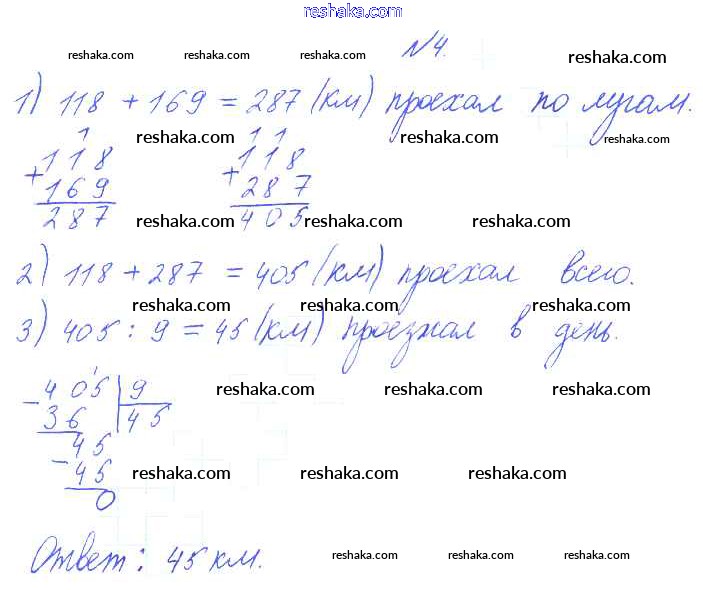 reshaka.com
№4.
reshaka.com reshaka.com reshaka.com reshaka.com
1) 118 + 169 = 287 (км) проехал по лугам.
reshaka.com reshaka.com reshaka.com
1 1 1
+118 +118
169 287
287 405
reshaka.com reshaka.com reshaka.com
2) 118 + 287 = 405 (км) проехал всего.
reshaka.com reshaka.com reshaka.com
3) 405 : 9 = 45 (км) проезжал в день.
- 405 | 9
36 45
reshaka.com reshaka.com reshaka.com
45
- 45
0
reshaka.com reshaka.com reshaka.com
Ответ: 45 км.
reshaka.com reshaka.com reshaka.com